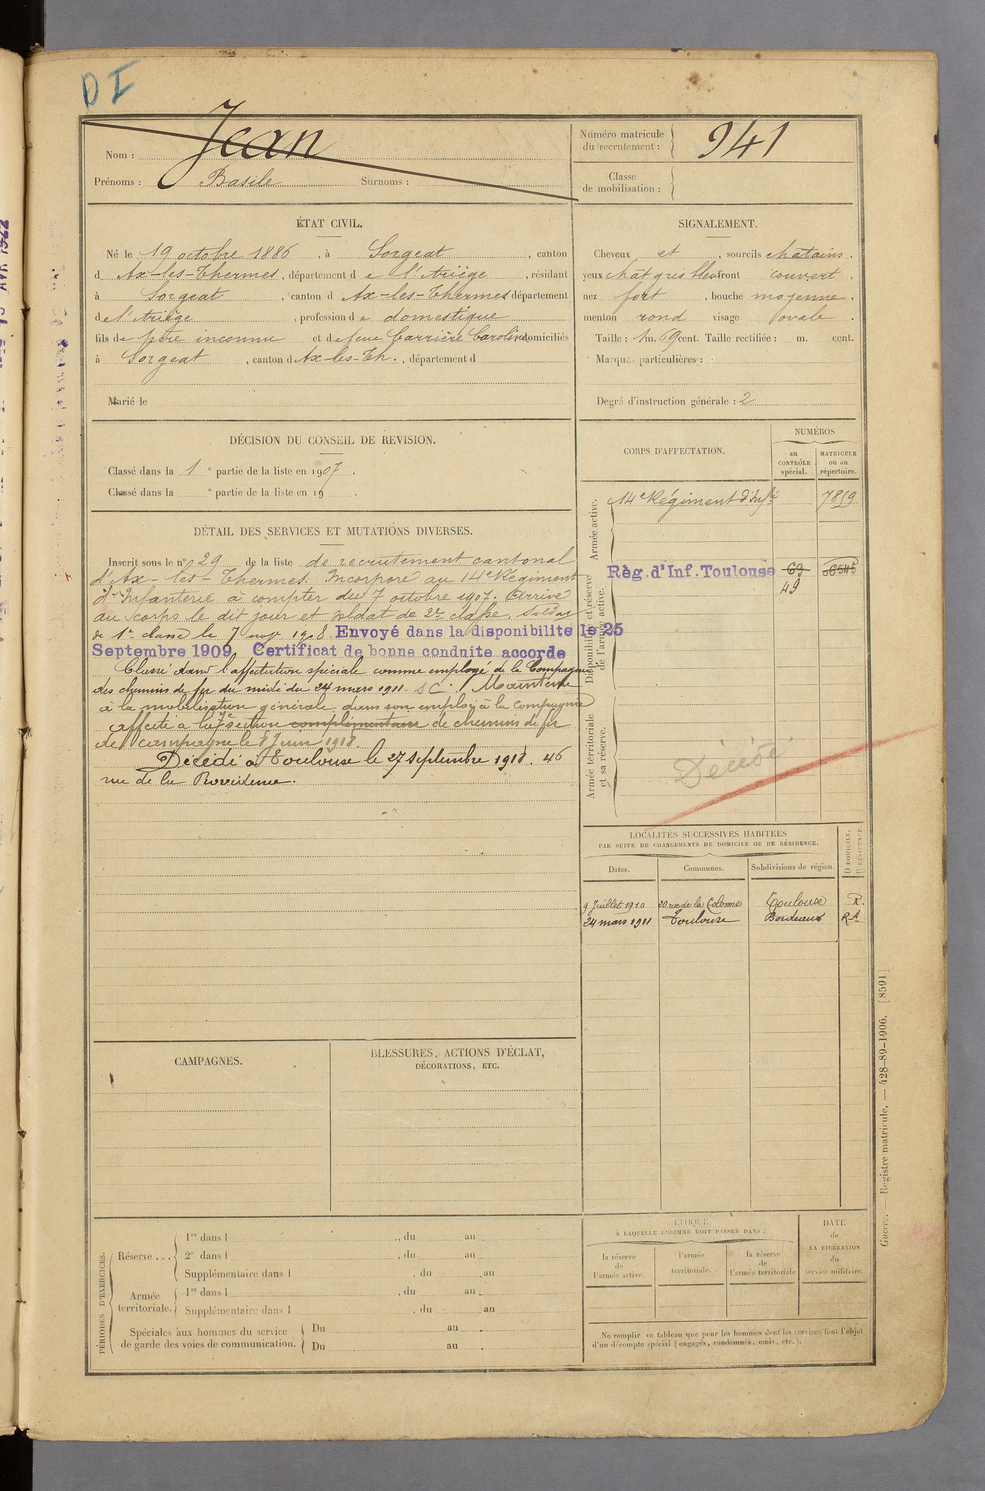 DI
Nom : Jean
Prénoms : Basile Surnoms :
Numéro matricule du recrutement : 941
Classe de mobilisation :
ÉTAT CIVIL.
Né le 19 octobre 1886, à Sorgeat, canton
d'Ax-les-Thermes, département de l'Ariège, résidant
à Sorgeat, canton d'Ax-les-Thermes département
de l'Ariège, profession de domestique
fils de père inconnu et de feue Carrière Caroline, domiciliés
à Sorgeat, canton d'Ax-les-Th., département d
Marié le
SIGNALEMENT.
Cheveux et, sourcils chatains.
yeux chat gris bleu front couvert.
nez fort, bouche moyenne.
menton rond visage ovale.
Taille : 1 m. 69 cent. Taille rectifiée : m. cent.
Marques particulières :
Degré d'instruction générale : 2
DÉCISION DU CONSEIL DE REVISION.
Classé dans la 1e partie de la liste en 1907.
Classé dans la e partie de la liste en 19 .
DÉTAIL DES SERVICES ET MUTATIONS DIVERSES.
Inscrit sous le n° 29 de la liste de recrutement cantonal
d'Ax-les-Thermes. Incorporé au 14e Régiment
d'Infanterie à compter du 7 octobre 1907. Arrivé
au corps le dit jour et soldat de 2e classe. Soldat
de 1e classe le 7 1908. Envoyé dans la disponibilité le 25
Septembre 1909. Certificat de bonne conduite accordé
Classé dans l'affectation spéciale comme employé de la Compagnie
des chemins de fer du midi du 24 mars 1911. SC. Maintenu
à la mobilisation générale dans son emploi à la Compagnie
affecté à la section complémentaire de chemins de fer
de campagne le 8 Juin 1918.
Décédé à Toulouse le 27 septembre 1918. 46
rue de la Providence.
CORPS D'AFFECTATION.
NUMÉROS
au CONTRÔLE spécial.
MATRICULE ou au répertoire.
Armée active.
14e Régiment d'Infie 7819
Disponibilité et réserve de l'armée active.
Règ. d'Inf. Toulouse 69
49
Armée territoriale et sa réserve.
Décédé
LOCALITÉS SUCCESSIVES HABITÉES
PAR SUITE DE CHANGEMENTS DE DOMICILE OU DE RÉSIDENCE.
Dates. Communes. Subdivisions de région. D DOMICILE. R RÉSIDENCE.
9 Juillet 1910 20, rue de la Colonne Toulouse R.
24 mars 1911 Toulouse Bordeaux R.A.
CAMPAGNES.
BLESSURES, ACTIONS D'ÉCLAT,
DÉCORATIONS, ETC.
PÉRIODES D'EXERCICES.
Réserve ...
1re dans l , du au .
2e dans l , du au .
Supplémentaire dans l , du au .
Armée territoriale.
1re dans l , du au .
Supplémentaire dans l , du au .
Spéciales aux hommes du service de garde des voies de communication.
Du au .
Du au .
ÉPOQUE
À LAQUELLE L'HOMME DOIT PASSER DANS :
la réserve de l'armée active.
l'armée territoriale.
la réserve de l'armée territoriale
DATE de LA LIBÉRATION du service militaire.
Ne remplir ce tableau que pour les hommes dont les services font l'objet
d'un décompte spécial (engagés, condamnés, omis, etc.)
Guerre. — Registre matricule. — 428-89-1906. [8591]